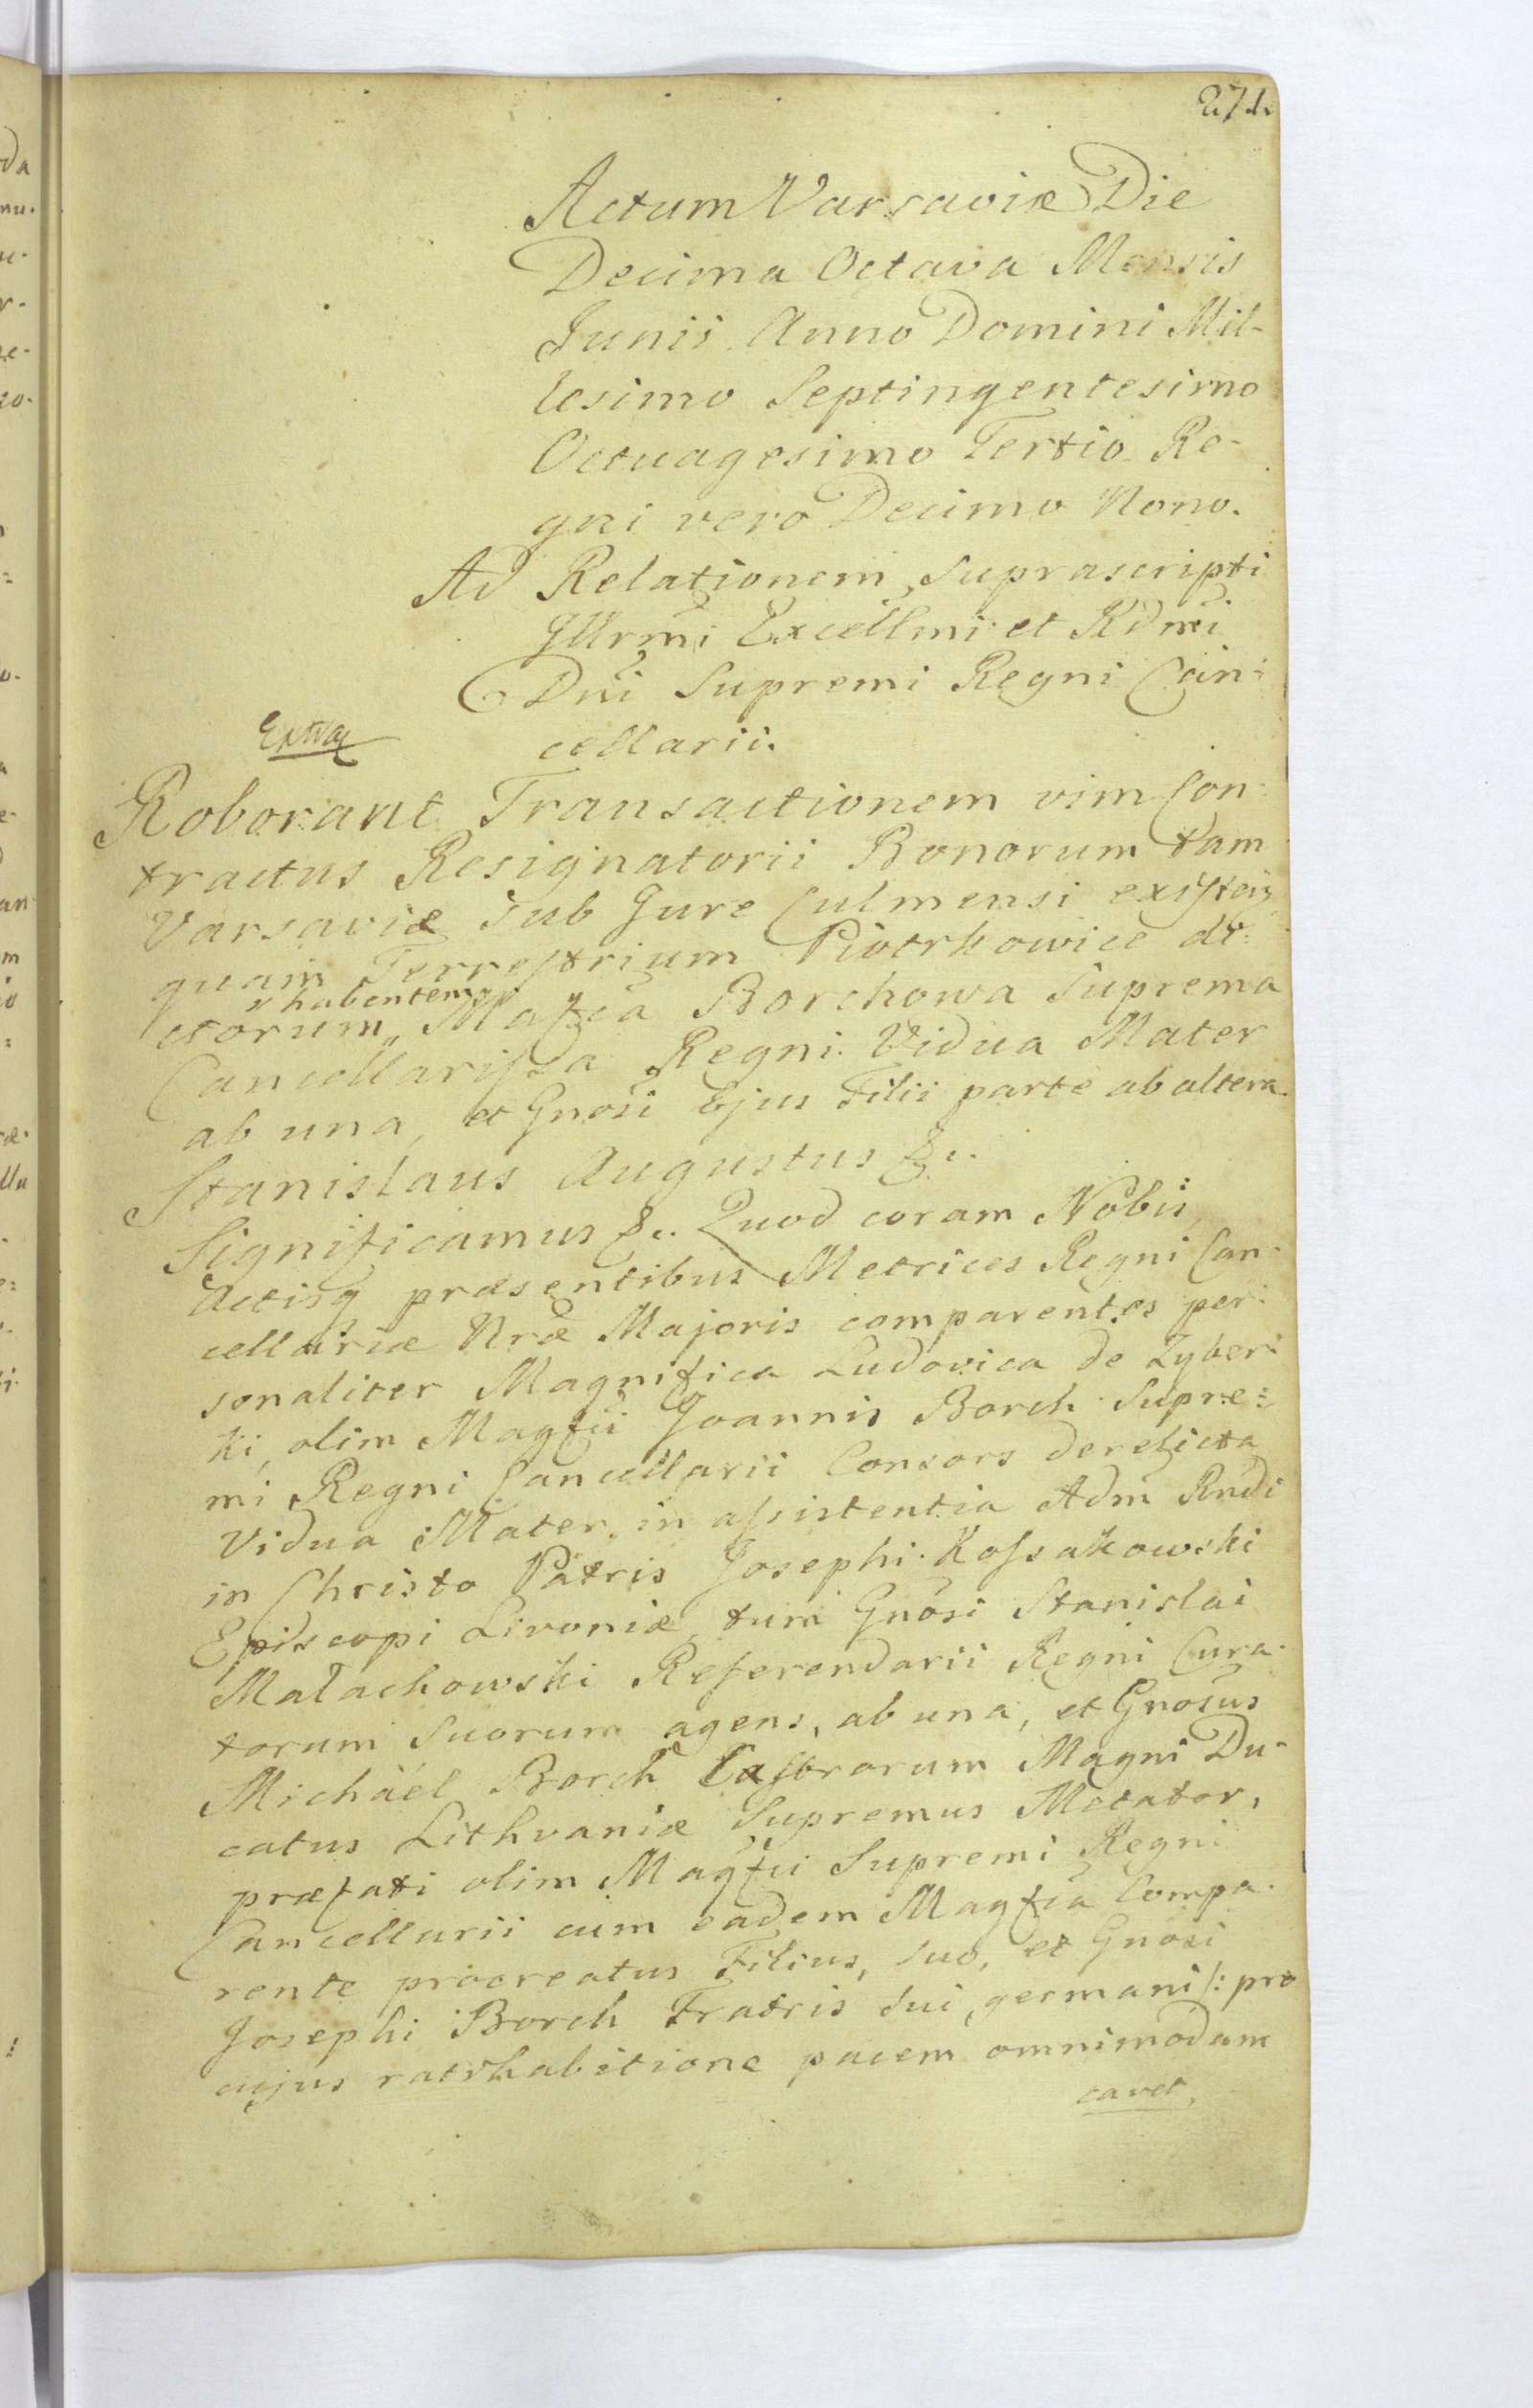 271.
Actum Varsaviæ Die
Decima Octava Mensis
Junii Anno Domini Mil-
lesimo Septingentesimo
Octuagesimo Tertio Re-
gni vero Decimo Nono.
Ad Relationem Suprascripti
Illrmi Excellmi et Rdmi
Dni Supremi Regni Can:
cellarii.
Roborant Transactionem vim Con-
tractus Resignatorii Bonorum tam
Varsaviæ sub Jure Culmensi existen
quam Terrestrium Piotrkowice di-
habentem
ctorum Magfca Borchowa Suprema
Cancellarissa Regni Vidua Mater
ab una, et Gnosi Ejus Filii parte ab altera.
Stanislaus Augustus &c.
Significamus &c. Quod coram Nobis,
Actisq præsentibus Metrices Regni Can-
cellariæ Nræ Majoris comparentes per-
sonaliter Magnifica Ludovica de Zyber-
ki, olim Magfci Joannis Borch Supre-
mi Regni Cancellarii Consors derelicta
Vidua Mater, in assistentia Adm Rndi
in Christo Patris Josephi Kossakowski
Episcopi Livoniæ, tum Gnosi Stanislai
Małachowski Referendarii Regni Cura-
torum Suorum agens, ab una, et Gnosus
Michäel Borch Castrorum Magni Du-
catus Lithvaniæ Supremus Metator,
præfati olim Magfci Supremi Regni
Cancellarii cum eadem Magfca Compa-
rente procreatus Filius, suo, et Gnosi
Josephi Borch Fratris sui germani /: pro
cujus ratihabitione pacem omnimodam
cavet,